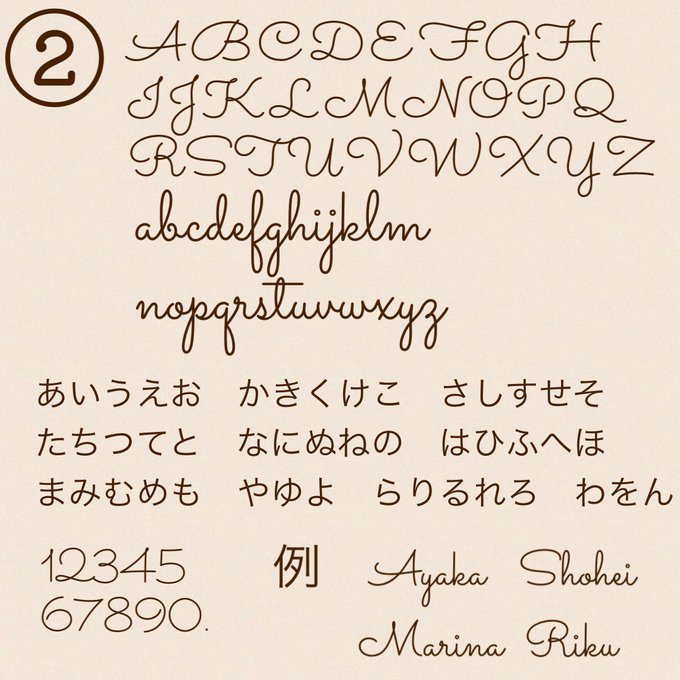 ②
ABCDEFGH
IJKLMNOPQ
RSTUVWXYZ
abcdefghijklm
nopqrstuvwxyz
あいうえお　かきくけこ　さしすせそ
たちつてと　なにぬねの　はひふへほ
まみむめも　やゆよ　らりるれろ　わをん
12345
67890.
例
Ayaka Shohei
Marina Riku